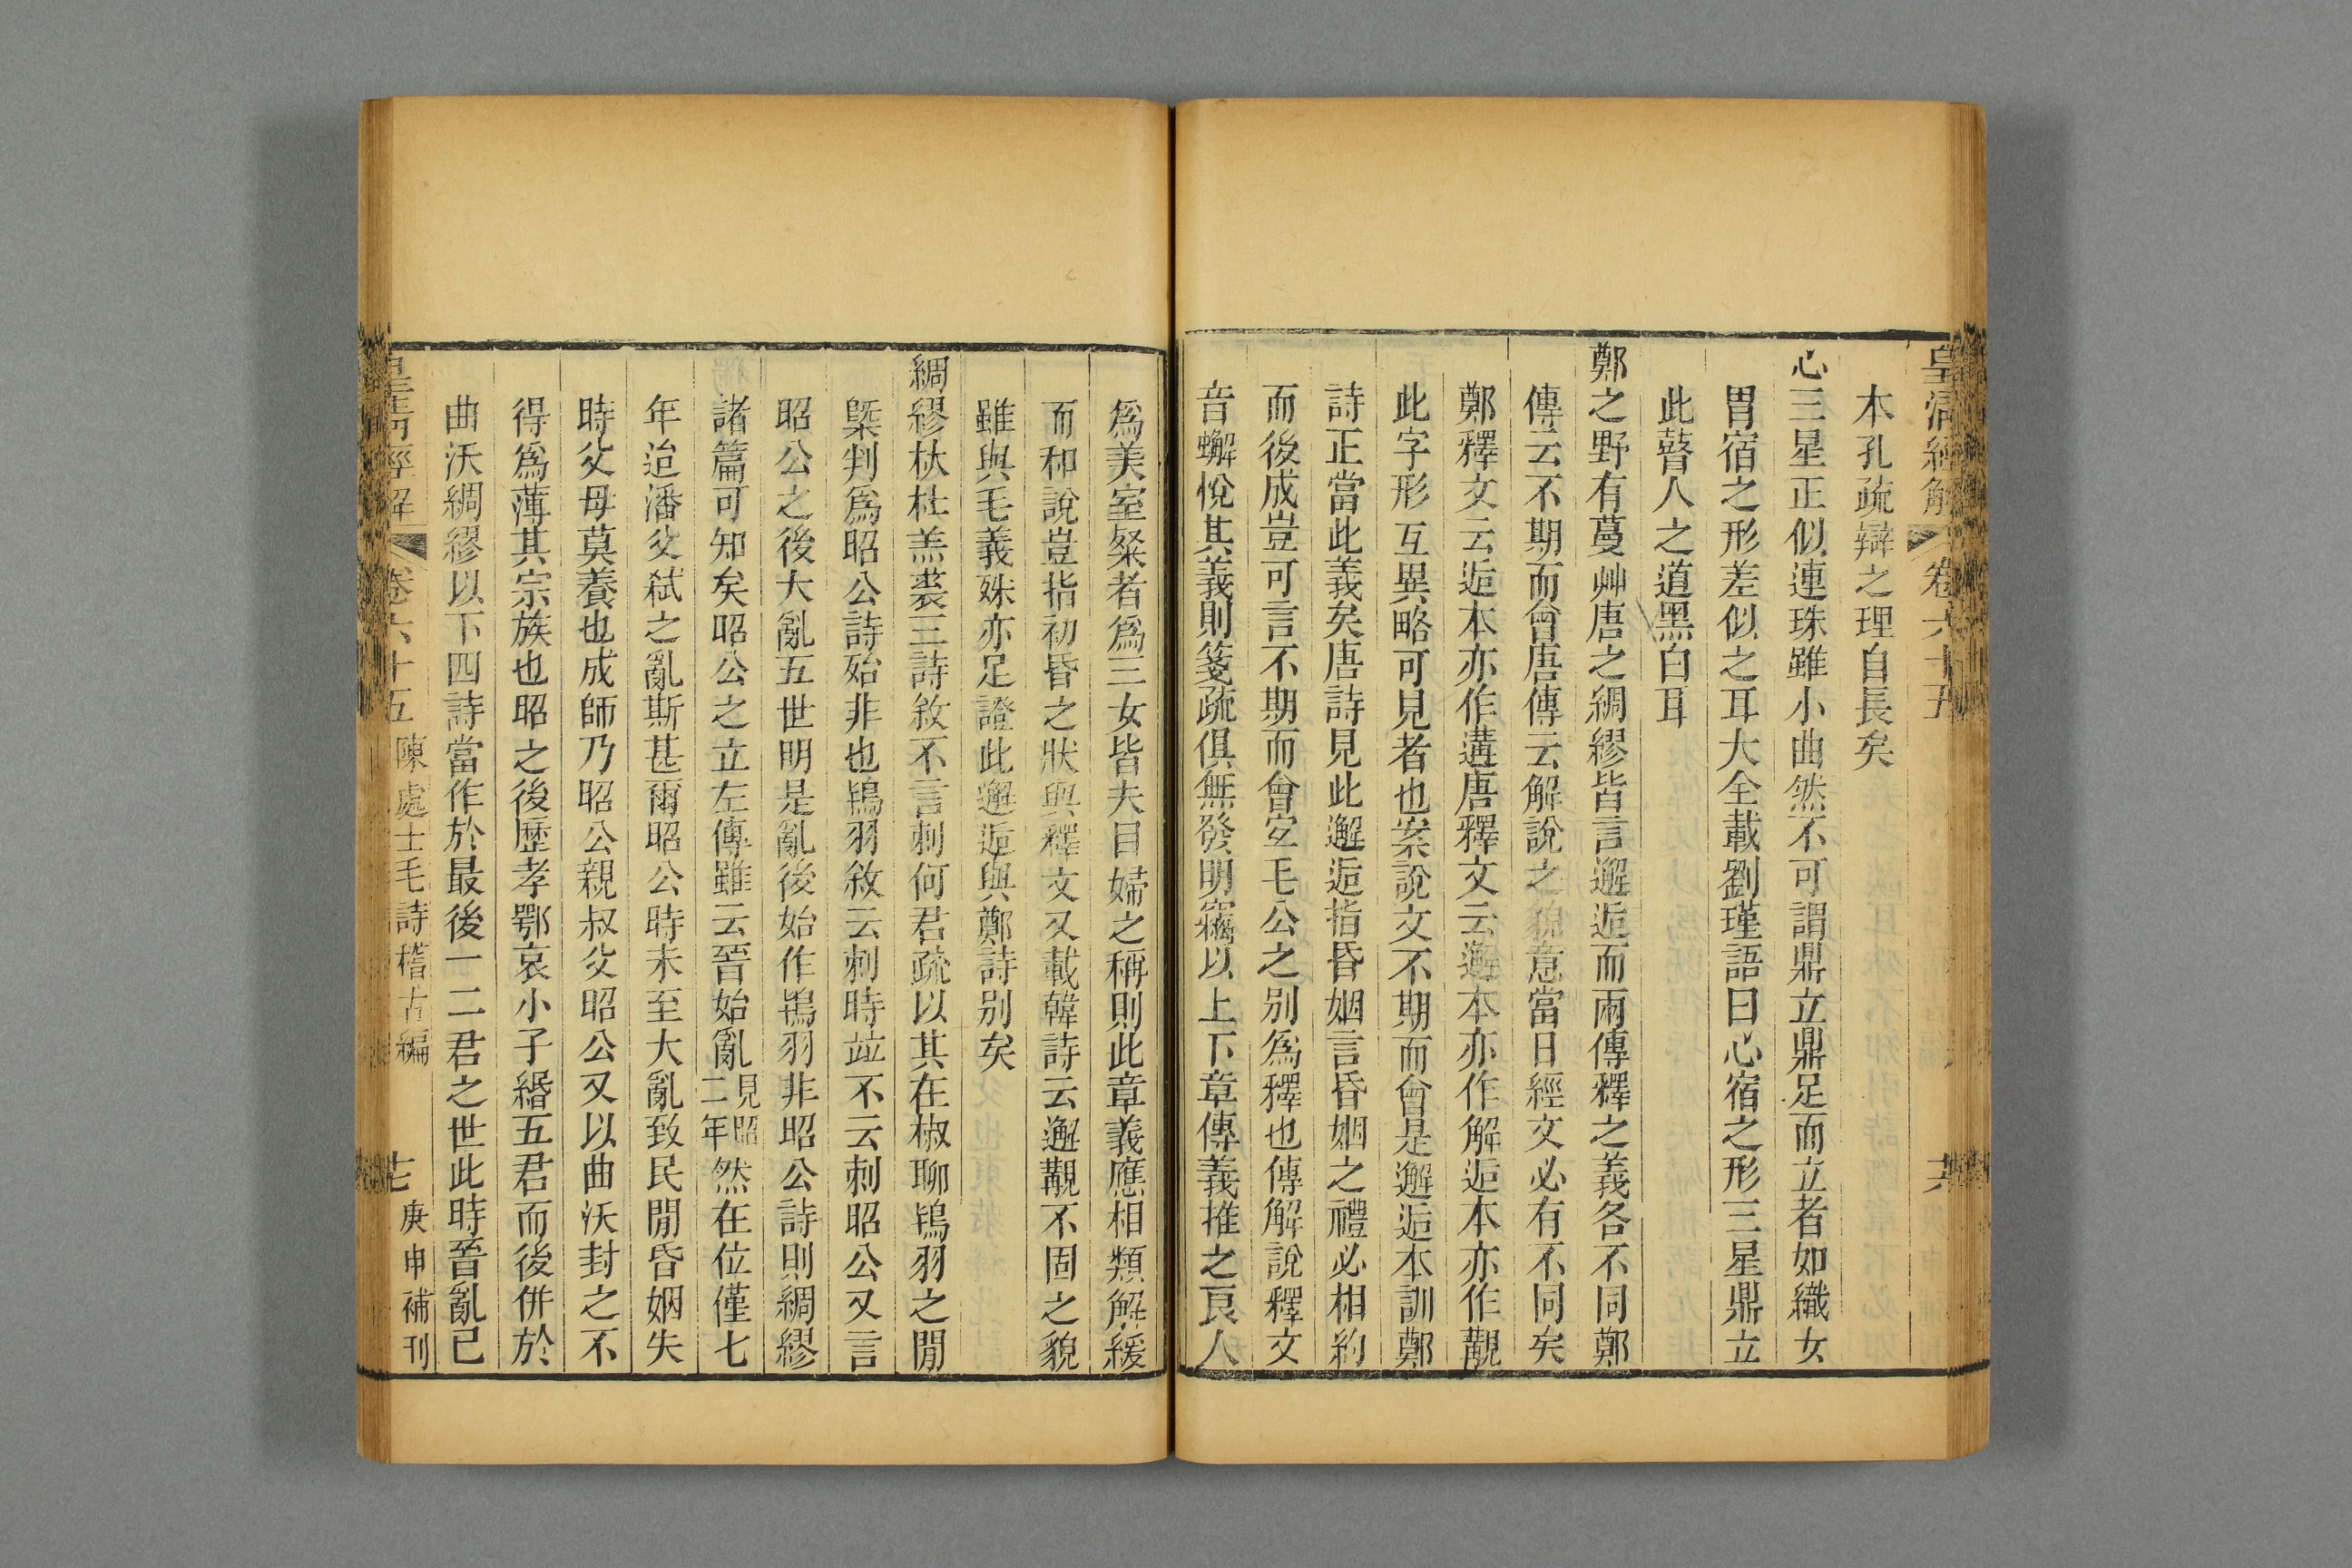 皇清經解 卷六十五 六
木孔疏辯之理自長矣
心三星正似連珠雖小曲然不可謂鼎立鼎足而立者如織女
胃宿之形差似之耳大全載劉瑾語曰心宿之形三星鼎立
此瞽人之道黑白耳
鄭之野有蔓艸唐之綢繆皆言邂逅而兩傳釋之義各不同鄭
傳云不期而會唐傳云解說之貌意當日經文必有不同矣
鄭釋文云逅本亦作遘唐釋文云邂本亦作解逅本亦作觀
此字形互異略可見者也案說文不期而會是邂逅本訓鄭
詩正當此義矣唐詩見此邂逅指昏姻言昏姻之禮必相約
而後成豈可言不期而會宐毛公之别爲釋也傳解說釋文
音蠏悅其義則箋疏俱無發明竊以上下章傳義推之良人
爲美室粲者爲三女皆夫目婦之稱則此章義應相類解緩
而和說豈指初昏之狀與釋文又載韓詩云邂覯不固之貌
雖與毛義殊亦足證此邂逅與鄭詩别矣
綢繆杕杜羔裘三詩敘不言刺何君疏以其在椒聊鴇羽之閒
槩判爲昭公詩殆非也鴇羽敘云刺時竝不云刺昭公又言
昭公之後大亂五世明是亂後始作鴇羽非昭公詩則綢繆
諸篇可知矣昭公之立左傳雖云晉始亂見昭二年然在位僅七
年迨潘父弒之亂斯甚爾昭公時未至大亂致民閒昏姻失
時父母莫養也成師乃昭公親叔父昭公又以曲沃封之不
得爲薄其宗族也昭之後歷孝鄂哀小子緡五君而後併於
曲沃綢繆以下四詩當作於最後一二君之世此時晉亂已
皇清經解 卷六十五 陳處士毛詩稽古編 七 庚申補刊